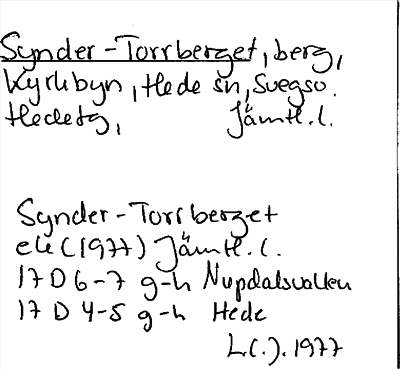 Synder-Torrberget, berg,
Kyrkbyn, Hede sn, Svegs o.
Hedetg, Jämtl.l.
Synder-Torrberget
ek (1977) Jämtl.l.
17 D 6-7 g-h Nupdalsvallen
17 D 4-5 g-h Hede
L(.). 1977